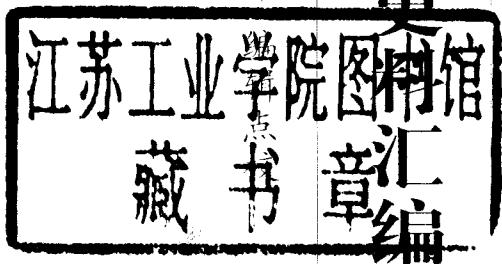 江苏工业学院图书馆
藏书章
史料汇编
点